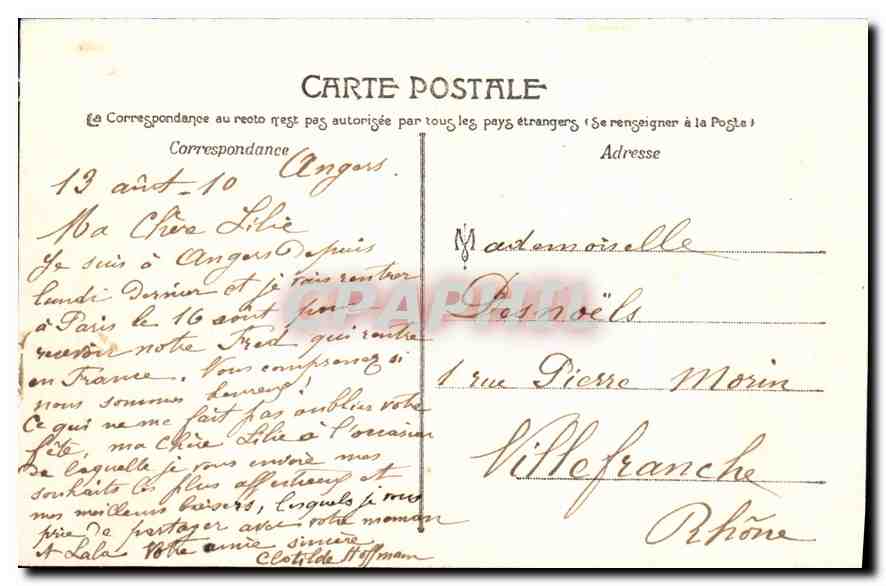 CARTE POSTALE
La Correspondance au recto n'est pas autorisée par tous les pays étrangers (Se renseigner à la Poste)
Correspondance
Angers.
13 août 10
Ma Chère Lilie
Je suis à Angers depuis
lundi dernier et je vais rentrer
à Paris le 16 août pour
recevoir notre Fred qui rentre
en France. Vous comprenez si
nous sommes heureux!
Ce qui ne me fait pas oublier votre
fête, ma Chère Lilie à l'occasion
de laquelle je vous envoie mes
souhaits les plus affectueux et
mes meilleurs baisers, lesquels je vous
prie de partager avec votre maman
et Lala Votre amie sincère
Clotilde Hoffmann
Adresse
Mademoiselle
Desnoëls
1 rue Pierre Morin
Villefranche
Rhône
CPAPHIL